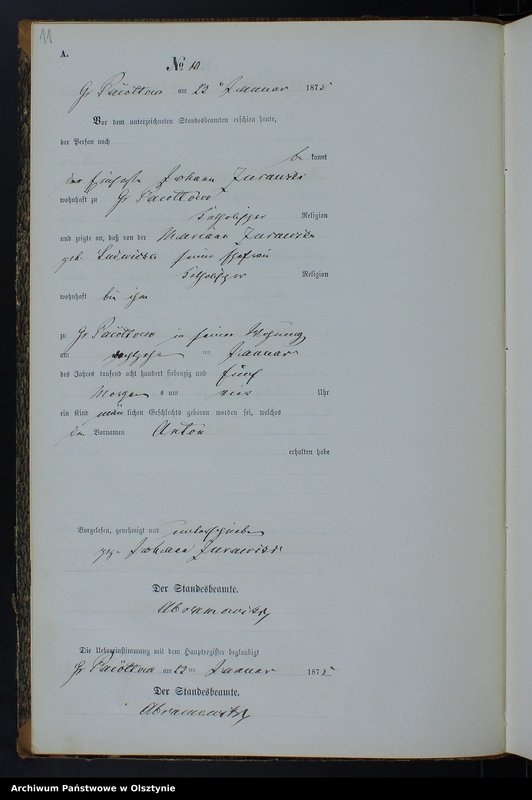 11
A.
No 10.
Gr Pacoltowo am 23 Januar 1875
Vor dem unterzeichneten Standesbeamten erschien heute,
der Person nach
be kannt
der Johann Zurawski
wohnhaft zu Gr Pacoltowo
katholischer Religion
und zeigte an, daß von der Marianna Zurawski
geb. seiner Ehefrau
katholischer Religion
wohnhaft bei ihm
zu Gr Pacoltowo in seiner Wohnung
am ten Januar
des Jahres tausend acht hundert siebenzig und fünf
Morgens um vier Uhr
ein Kind männlichen Geschlechts geboren worden sei, welches
den Vornamen Anton
erhalten habe
Vorgelesen, genehmigt und unterschrieben
gez. Johann Zurawski
Der Standesbeamte.
Abramowski
Die Uebereinstimmung mit dem Hauptregister beglaubigt
Gr Pacoltowo am 23 ten Januar 1875
Der Standesbeamte.
Abramowski
Archiwum Państwowe w Olsztynie